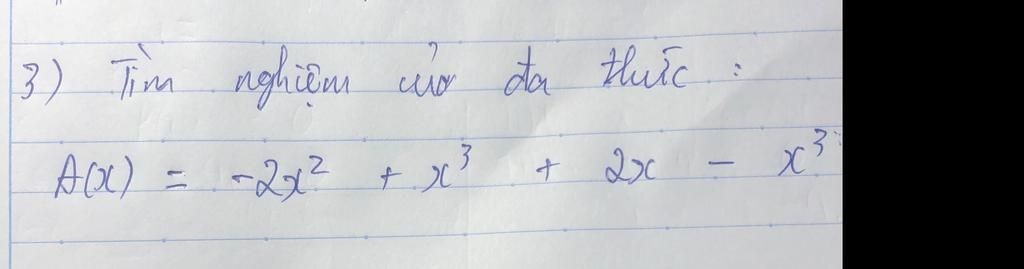 3) Tìm nghiệm của đa thức :
A(x) = -2x² + x³ + 2x - x³